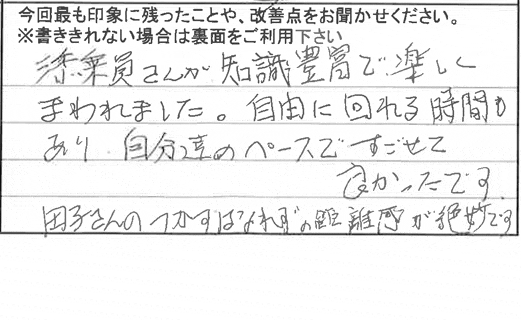 今回最も印象に残ったことや、改善点をお聞かせください。
※書ききれない場合は裏面をご利用下さい
添乗員さんが知識豊富で楽しく
まわれました。自由に回れる時間も
あり 自分達のペースですごせて
良かったです。
田子さんのつかずはなれずの距離感が絶妙です